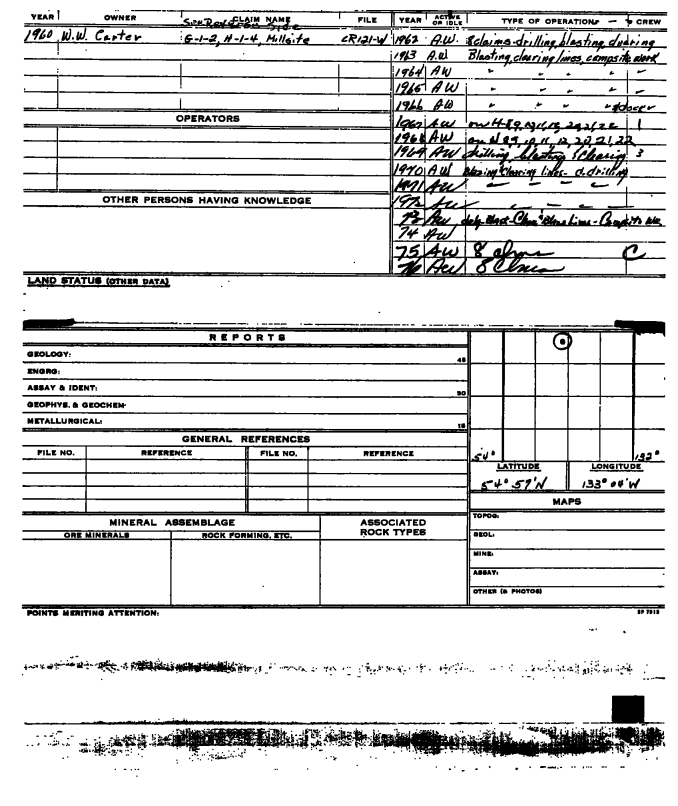 YEAR OWNER CLAIM NAME FILE YEAR ACTIVE OR IDLE TYPE OF OPERATIONS CREW
See Reverse Side
1960 W.W. Carter G-1-2, H-1-4, Millsite CR121-W 1962 A.W. 8 claims-drilling, blasting, clearing
1963 A.W. Blasting, clearing lines, composite work
1964 AW " " " "
1965 AW " " " "
1966 AW " " " "
OPERATORS
1967 AW on H 8 9, 1
1968 AW on H 8 9, 10, 11, 12, 20, 21, 22
1969 AW drilling blasting & clearing 3
1970 AW Clearing lines - d. drilling
1971 AW
OTHER PERSONS HAVING KNOWLEDGE
1972 AW
73 AW
74 AW
75 AW 8 clms C
76 AW 8 Clms
LAND STATUS (OTHER DATA)
REPORTS
GEOLOGY: 45
ENGRG:
ASSAY & IDENT: 30
GEOPHYS. & GEOCHEM-
METALLURGICAL: 15
GENERAL REFERENCES
FILE NO. REFERENCE FILE NO. REFERENCE
54° 132°
LATITUDE LONGITUDE
54° 57'N 133° 04'W
MAPS
MINERAL ASSEMBLAGE ASSOCIATED ROCK TYPES
ORE MINERALS ROCK FORMING, ETC.
TOPOG:
GEOL:
MINE:
ASSAY:
OTHER (& PHOTOS)
POINTS MERITING ATTENTION: